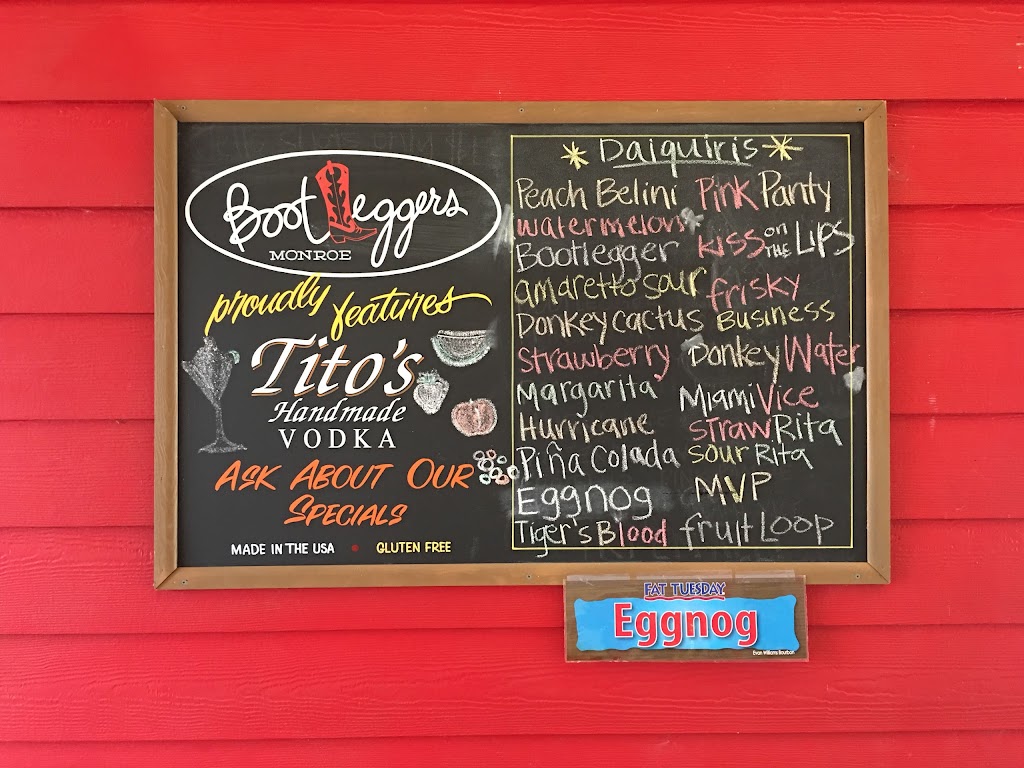 Bootleggers
MONROE
proudly features
Tito's
Handmade
VODKA
ASK ABOUT OUR
SPECIALS
MADE IN THE USA • GLUTEN FREE
Daiquiris
Peach Belini
watermelon
Bootlegger
amaretto sour
Donkey cactus
Strawberry
Margarita
Hurricane
Piña Colada
Eggnog
Tiger's Blood
Pink Panty
KISS ON THE LIPS
frisky
Business
Donkey Water
Miami Vice
strawRita
sour Rita
MVP
fruit Loop
FAT TUESDAY
Eggnog
Evan Williams Bourbon